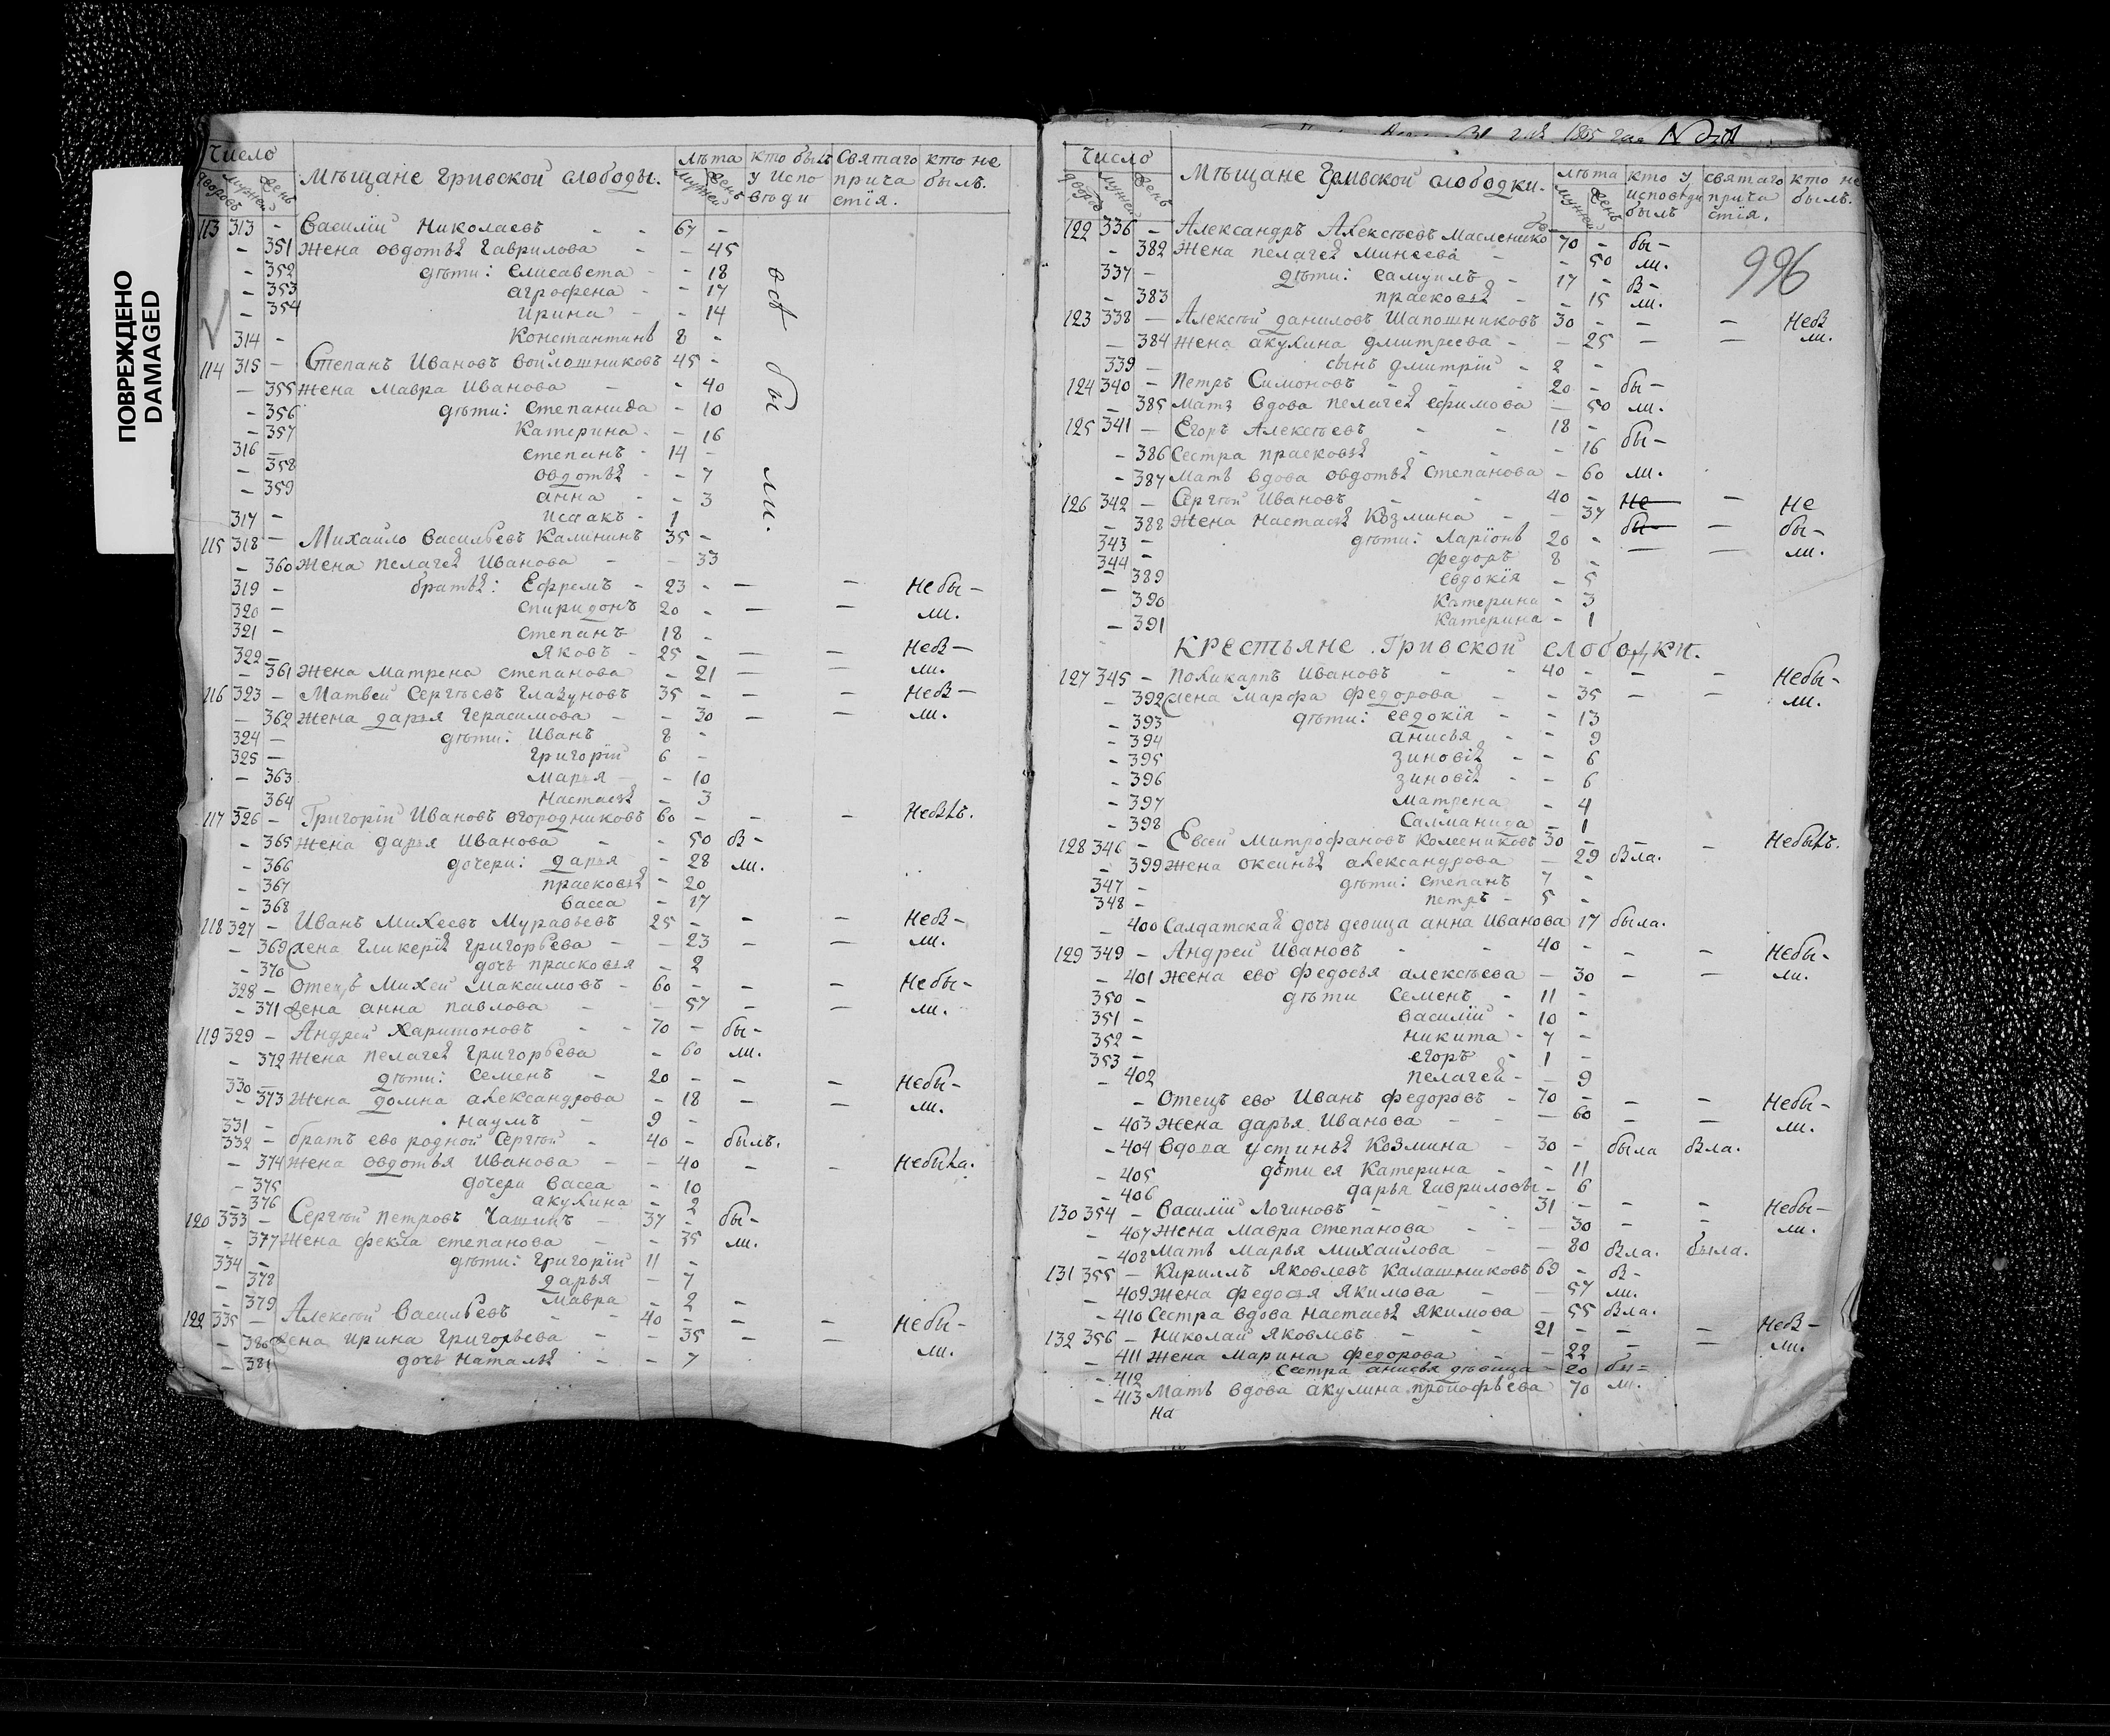 ПОВРЕЖДЕНО
DAMAGED
Число
дворовъ мужей женъ
Мѣщане Гривской слободы.
лѣта
мужей женъ
кто былъ у испо вѣди
Святаго прича стія.
кто не былъ.
113 313 - Василій Николаевъ - - 67 -
- 351 Жена овдотья Гаврилова - - 45
- 352 дѣти: Елисавета - - 18
- 353 агрофена - - 17
- 354 Ирина - - 14
314 - Константинъ 8 -
всѣ бы ли.
114 315 - Степанъ Ивановъ Войлошниковъ 45 -
- 355 Жена Мавра Иванова - - 40
- 356 дѣти: Степанида - 10
- 357 Катерина - - 16
316 - степанъ - 14 -
- 358 овдотья - - 7
- 359 анна - - 3
317 - Исаакъ - 1
115 318 - Михайло Васильевъ Калининъ 35 -
- 360 Жена пелагея Иванова - - 33
319 - братья: Ефремъ - 23 - - - Небы-
320 - спиридонъ 20 - - - ли.
321 - степанъ 18 -
322 - яковъ - 25 - - - Небы-
- 361 Жена матрена степанова - 21 - - ли.
116 323 - Матвей Сергѣевъ Глазуновъ 35 - - - Небы-
- 362 Жена дарья Герасимова - - 30 - - ли.
324 - дѣти: Иванъ 8 -
325 - Григорій 6 -
- 363 Марья - - 10
- 364 Настасья - 3
117 326 - Григорій Ивановъ огородниковъ 60 - - - Небылъ.
- 365 Жена дарья Иванова - - 50 бы-
- 366 дочери: дарья - 28 ли.
- 367 прасковья - 20
- 368 васса - 17
118 327 - Иванъ Михеевъ Муравьевъ 25 - - - Небы-
- 369 Жена Гликерія Григорьева - - 23 - - ли.
- 370 дочь прасковья - 2
328 - отецъ Михей Максимовъ - 60 - - - Небы-
- 371 Жена анна павлова - 57 - - ли.
119 329 - Андрей Харитоновъ - - 70 - бы-
- 372 Жена пелагея Григорьева - 60 ли.
330 - дѣти: Семенъ - 20 - - - Небы-
- 373 Жена домна александрова - 18 - - ли.
331 - Наумъ - 9 -
332 - братъ ево родной Сергѣй - 40 - былъ.
- 374 Жена овдотья Иванова - - 40 - - Небыла.
- 375 дочери васса - 10
- 376 акулина - 2
120 333 - Сергѣй петровъ Чашинъ - 37 - бы-
- 377 Жена фекла степанова - - 35 ли.
334 - дѣти: Григорій 11 -
- 378 дарья - 7
- 379 мавра - 2 -
122 335 - Алексѣй Васильевъ - - 40 - - - Небы-
- 380 Жена ирина Григорьева - - 35 - - ли.
- 381 дочь Наталья - - 7
1805 года
Число
дворовъ мужей женъ
Мѣщане Гривской слободки.
лѣта
мужей женъ
кто у исповѣди былъ
святаго прича стія.
кто не былъ.
996
122 336 - Александръ Алексѣевъ Масленико въ 70 - бы-
- 382 Жена пелагея Минеева - - 50 ли.
337 - дѣти: самуилъ - 17 - бы-
- 383 прасковья - - 15 ли.
123 338 - Алексѣй даниловъ Шапошниковъ 30 - - - Небы
- 384 Жена акулина дмитреева - - 25 - - ли.
339 - сынъ дмитрій - 2 -
124 340 - Петръ Симоновъ - - - 20 - бы-
- 385 Мать вдова пелагея ефимова - 50 ли.
125 341 - Егоръ Алексѣевъ - - 18 -
- 386 Сестра прасковья - - - 16 бы-
- 387 Мать вдова овдотья степанова - 60 ли.
126 342 - Сергѣй Ивановъ - - 40 - Не - Не
- 388 Жена Настасья Козмина - - 37 бы- - бы-
343 - дѣти: Ларіонъ 20 - - - ли.
344 - федоръ 8 -
- 389 евдокія - 5
- 390 Катерина - 3
- 391 Катерина - 1
Крестьяне Гривской слободки.
127 345 - Поликарпъ Ивановъ - - 40 - - - Небы-
- 392 Жена Марфа федорова - - 35 - - ли.
- 393 дѣти: евдокія - - 13
- 394 анисья - - 9
- 395 зиновія - - 6
- 396 зиновія - - 6
- 397 матрена - 4
- 398 Салманида - 1
128 346 - Евсей Митрофановъ Колесниковъ 30 - - - Небылъ.
- 399 Жена оксинья александрова - 29 была.
347 - дѣти: степанъ 7 -
348 - петръ - 5 -
- 400 Салдатская дочь девица анна Иванова 17 была.
129 349 - Андрей Ивановъ - - 40 - - - Небы-
- 401 Жена ево федосья алексѣева - 30 - - ли.
350 - дѣти Семенъ - 11 -
351 - василій - 10 -
352 - никита - 7 -
353 - егоръ - 1 -
- 402 пелагея - - 9
- Отецъ ево Иванъ федоровъ - 70 - - - Небы-
- 403 Жена дарья Иванова - - - 60 - - ли.
- 404 вдова устинья Козмина - 30 - была была.
- 405 дѣти ея Катерина - - 11
- 406 дарья Гавриловы - 6
130 354 - Василій Логиновъ - - 31 - - - Небы-
- 407 Жена мавра степанова - - - 30 - - ли.
- 408 Мать Марья михайлова - - 80 была. была.
131 355 - Кириллъ Яковлевъ Калашниковъ 69 - бы-
- 409 Жена федосья Якимова - - 57 ли.
- 410 Сестра вдова Настасья Якимова - 55 была.
132 356 - Николай Яковлевъ - - 21 - - - Небы-
- 411 Жена марина федорова - - 22 - - ли.
- 412 Сестра анисья дѣвица - 20 бы-
- 413 Мать вдова акулина прокофьева 70 ли.
На